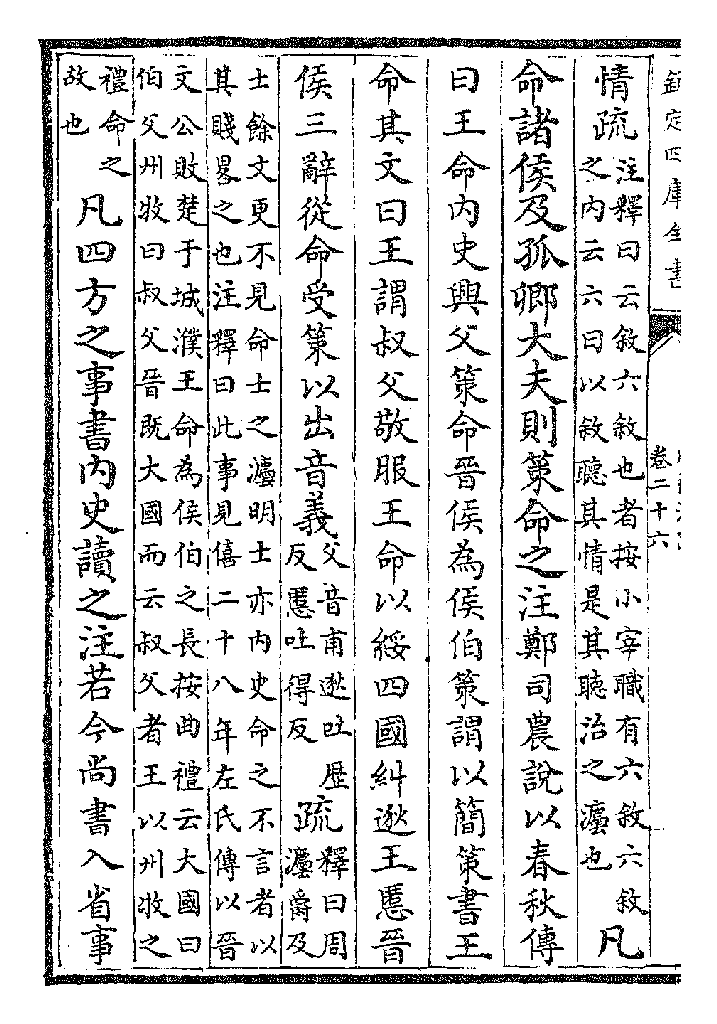 欽定四庫全書
卷二十六
情疏
注釋曰云敘六敘也者按小宰職有六敘六敘
之内云六曰以敘聽其情是其聽治之灋也
凡
命諸侯及孤卿大夫則策命之注鄭司農說以春秋傳
曰王命内史興父策命晉侯為侯伯策謂以簡策書王
命其文曰王謂叔父敬服王命以綏四國糾逖王慝晉
侯三辭從命受策以出音義
父音甫逖吐歷
反慝吐得反
疏
釋曰周
灋爵及
士餘文更不見命士之灋明士亦内史命之不言者以
其賤畧之也注釋曰此事見僖二十八年左氏傳以晉
文公敗楚于城濮王命為侯伯之長按曲禮云大國曰
伯父州牧曰叔父晉既大國而云叔父者王以州牧之
禮命之
故也
凡四方之事書内史讀之注若今尚書入省事